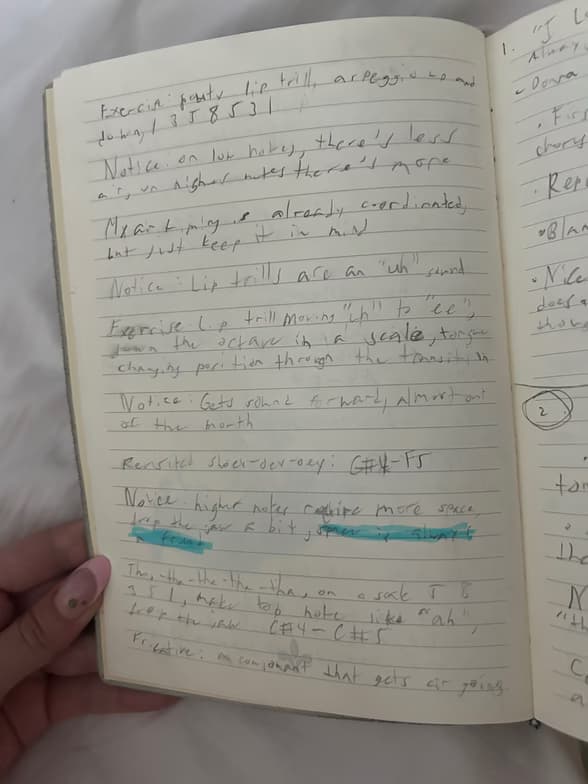 Exercise: pouty lip trill, arpeggio up and
down, 1 3 5 8 5 3 1
Notice: on low notes, there's less
air, on higher notes there's more
My air timing is already coordinated,
but just keep it in mind
Notice: Lip trills are an "uh" sound
Exercise Lip trill moving "uh" to "ee",
down the octave in a scale, tongue
changing position through the transition
Notice: Gets sound forward, almost out
of the mouth
Revisited C#4-F5
Notice: higher notes require more space,
drop the jaw a bit, space is always
in front
the-the-the-tha, on a scale
3 5 1, make top note like "ah",
drop the jaw C#4-C#5
Fricative: a consonant that gets air going
1. "I
Dona
Firs
chorus
Repe
Nice
does
2
the
N
"th
a